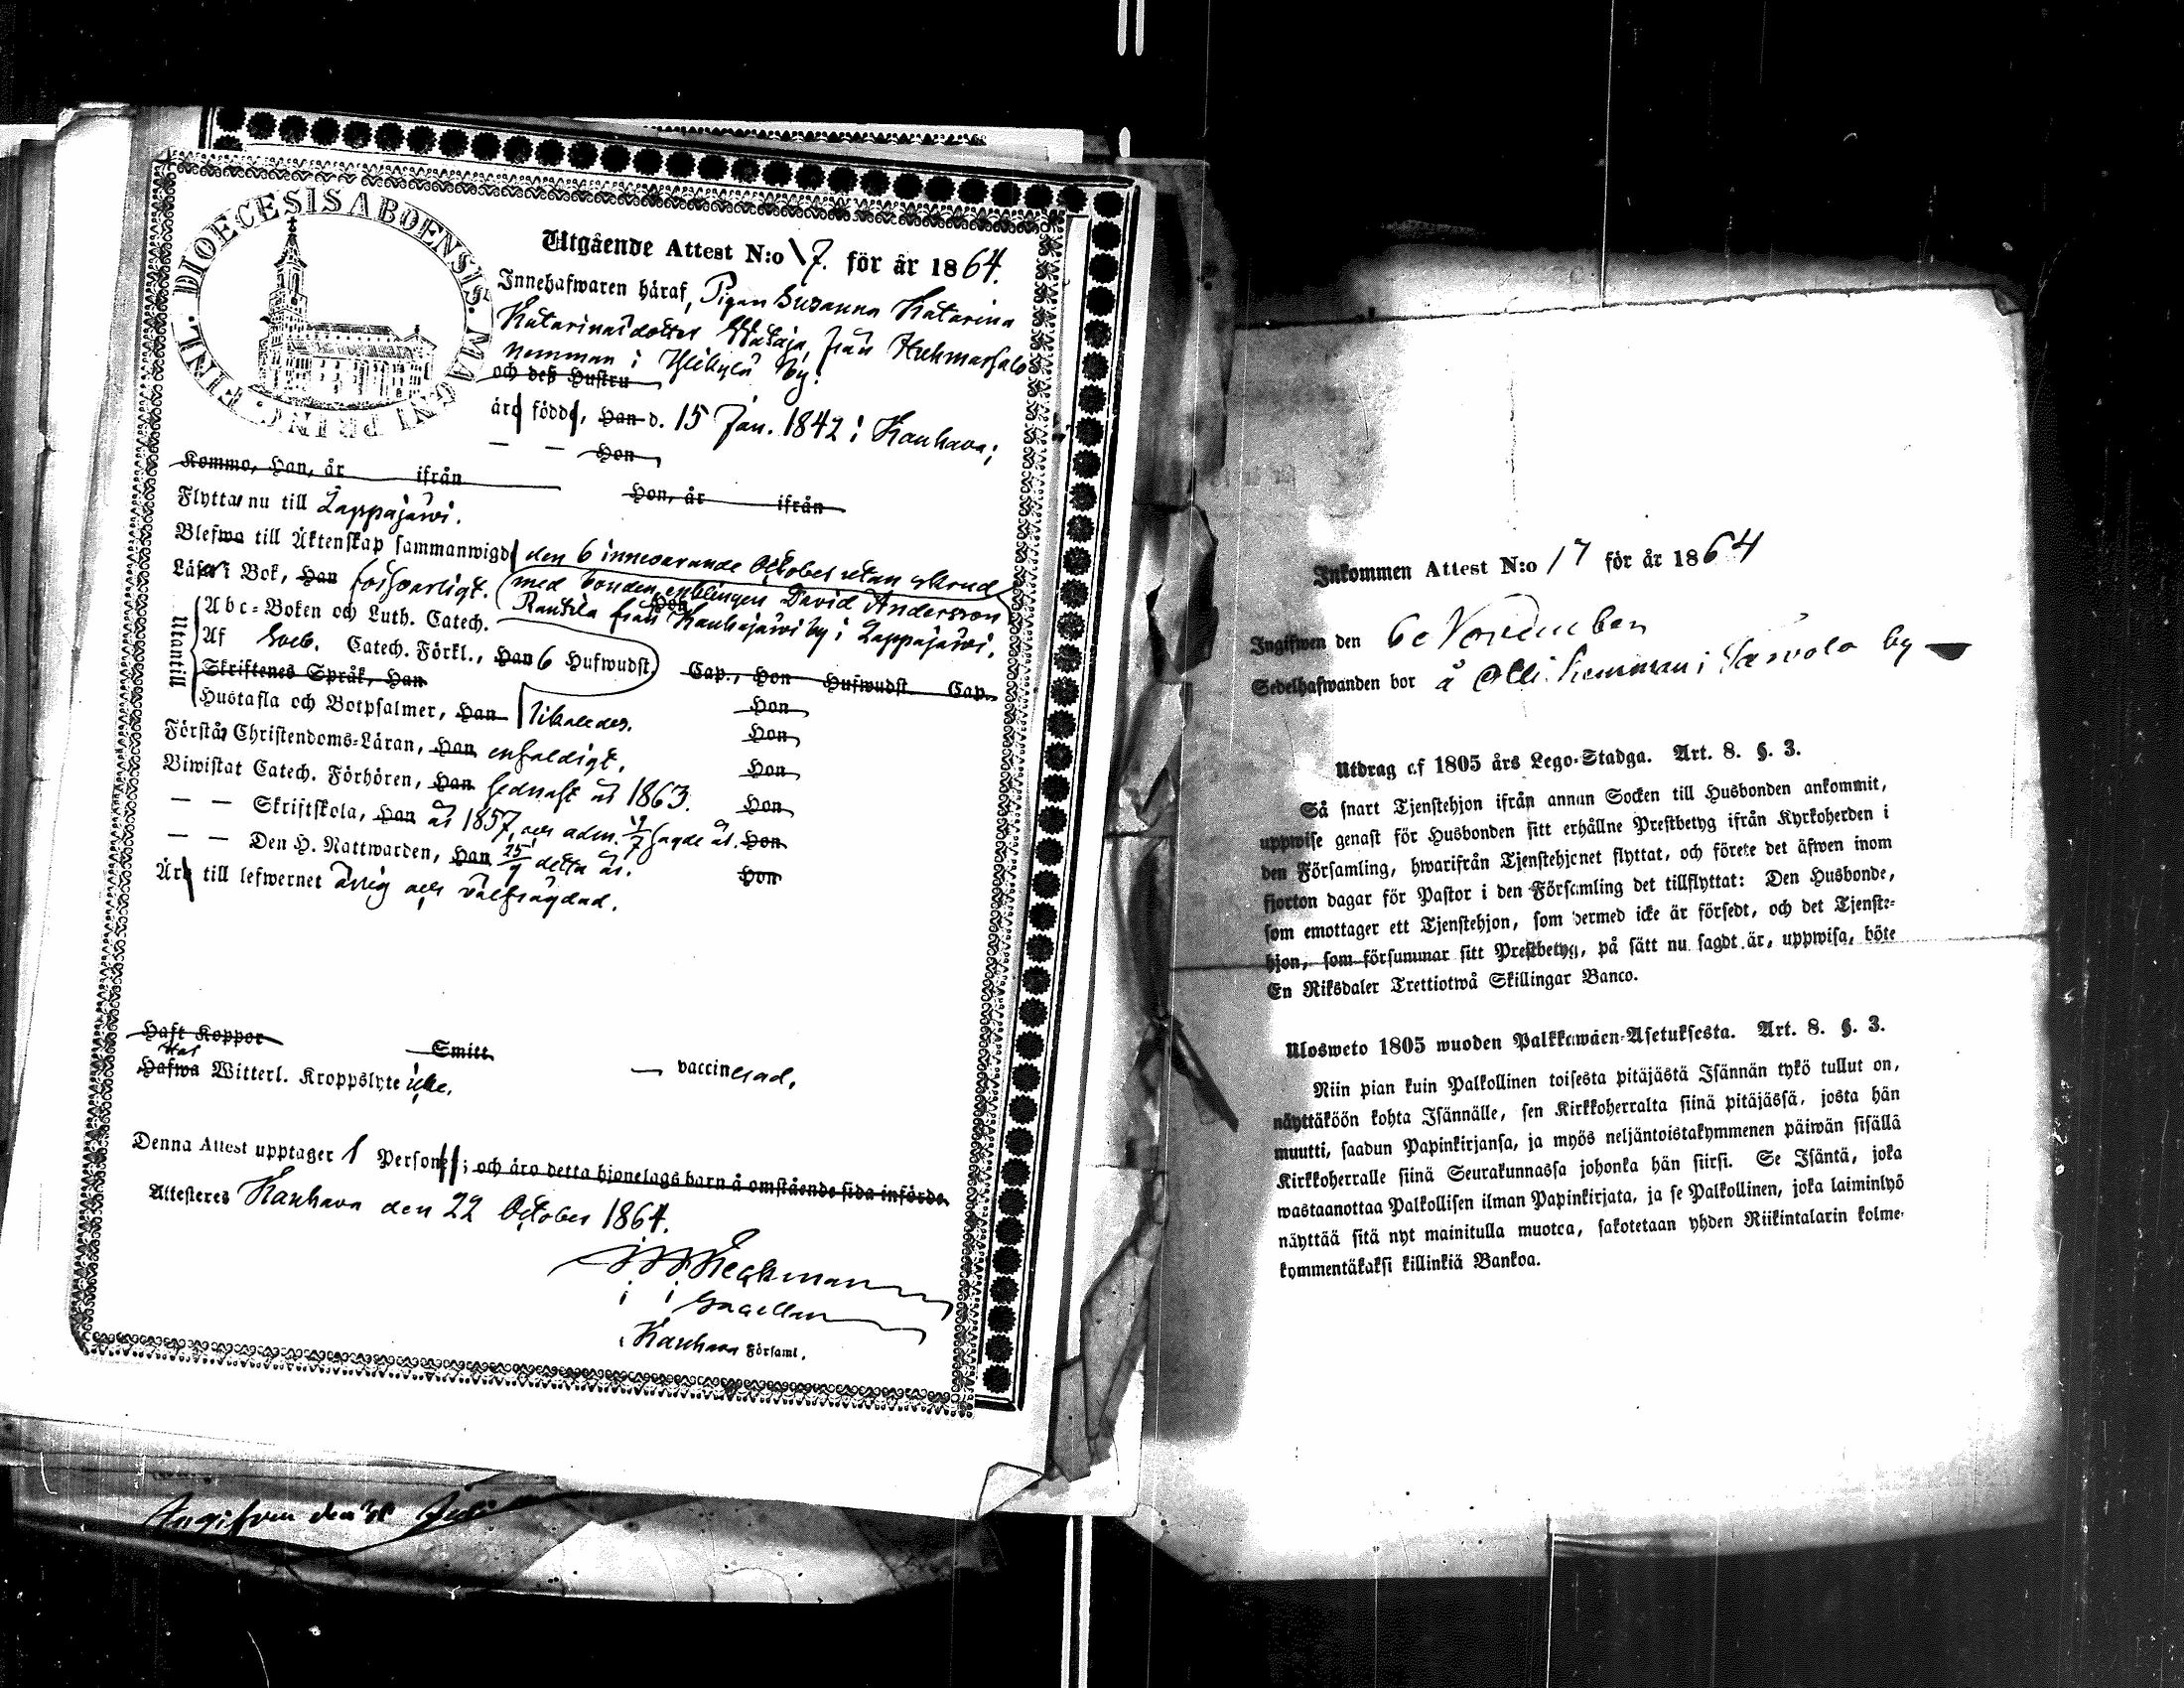 FINL. DIOECESIS ABOENSIS. MAGNI PRINC.
Utgående Attest N:o 17. för år 1864.
Innehafwaren häraf, Pigan Susanna Katarina
Katarinasdotter Wataja, från
i Ylikylä by.
och deß Hustru
äro född, Han d. 15 Jan. 1842 i Kauhava;
— — Hon
Kommo, Han, år ifrån Hon, år ifrån
Flyttar nu till Lappajärvi.
Blefwa till Äktenskap sammanwigd den 6 innevarande October utan
med bonden, enklingen David Andersson
Läser i Bok, Han försvarligt. Hon
Rantila från Kauhajärvi by i Lappajärvi.
Utantill
Abc-Boken och Luth. Catech.
Af Sveb. Catech. Förkl., Han 6 Hufwudst. Cap., Hon Hufwudst. Cap.
Skriftenes Språk, Han Hon
Hustafla och Botpsalmer, Han likaledes. Hon
Förstår Christendoms-Läran, Han enfaldigt. Hon
Biwistat Catech. Förhören, Han sednast år 1863. Hon
— — Skriftskola, Han år 1857, och adm. sagde år. Hon
— — Den H. Nattwarden, Han 25/9 detta år. Hon
Är till lefwernet ärlig och välfrägdad.
Haft Koppor Smitt — vaccinerad.
Har
Hafwa Witterl. Kroppslyte icke.
Denna Attest upptager 1 Person; och äro detta hjonelags barn å omstående sida införde.
Attesteras Kauhava den 22 October 1864.
i Kauhava Församl.
Ingifven den 30
Inkommen Attest N:o 17 för år 1864
Ingifwen den 6e November
Sedelhafwanden bor å Olli i Savola by
Utdrag af 1805 års Lego-Stadga. Art. 8. §. 3.
Så snart Tjenstehjon ifrån annan Socken till Husbonden ankommit,
uppwise genast för Husbonden sitt erhållne Prestbetyg ifrån Kyrkoherden i
den Församling, hwarifrån Tjenstehjonet flyttat, och förete det äfwen inom
fjorton dagar för Pastor i den Församling det tillflyttat: Den Husbonde,
som emottager ett Tjenstehjon, som dermed icke är försedt, och det Tjenste-
hjon, som försummar sitt Prestbetyg, på sätt nu sagdt är, uppwisa, böte
En Riksdaler Trettiotwå Skillingar Banco.
Ulosweto 1805 wuoden Palkkawäen-Asetuksesta. Art. 8. §. 3.
Niin pian kuin Palkollinen toisesta pitäjästä Isännän tykö tullut on,
näyttäköön kohta Isännälle, sen Kirkkoherralta siinä pitäjässä, josta hän
muutti, saadun Papinkirjansa, ja myös neljäntoistakymmenen päiwän sisällä
Kirkkoherralle siinä Seurakunnassa johonka hän siirsi. Se Isäntä, joka
wastaanottaa Palkollisen ilman Papinkirjata, ja se Palkollinen, joka laiminlyö
näyttää sitä nyt mainitulla muotoa, sakotetaan yhden Riikintalarin kolme-
kymmentäkaksi killinkiä Bankoa.